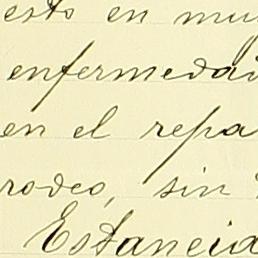 esto en muy
enfermedad
en el repa
rodeo, sin
Estancia